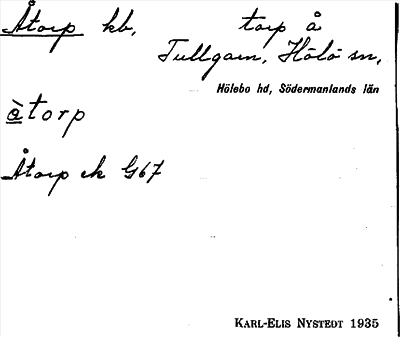 Åtorp kb, torp å
Tullgarn, Hölö sn,
Hölebo hd, Södermanlands län
àtorp
Åtorp ek G67
KARL-ELIS NYSTEDT 1935